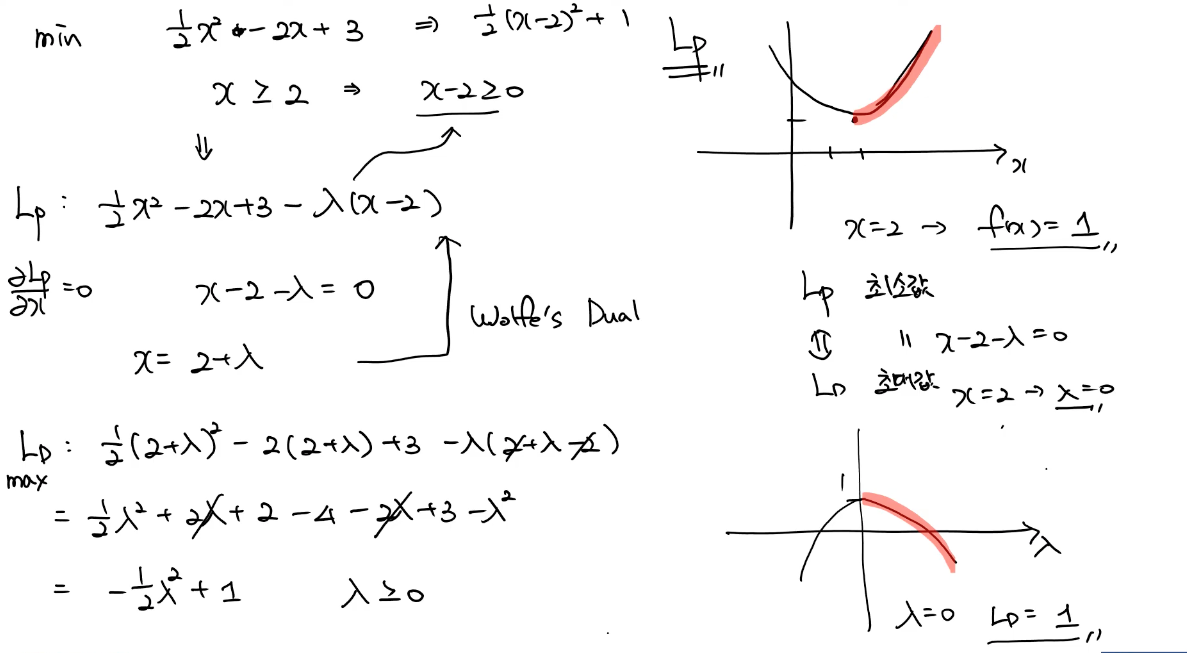 min ½x² - 2x + 3 ⇒ ½(x-2)² + 1
x ≥ 2 ⇒ x-2 ≥ 0
⇓
Lp : ½x² - 2x + 3 - λ(x-2)
∂Lp/∂x = 0 x - 2 - λ = 0
x = 2 + λ
Wolfe's Dual
LD : ½(2+λ)² - 2(2+λ) + 3 - λ(2+λ-2)
max
= ½λ² + 2λ + 2 - 4 - 2λ + 3 - λ²
= -½λ² + 1 λ ≥ 0
Lp
x
x=2 → f(x) = 1
Lp 최소값
⇕ " x-2-λ=0
LD 최대값 x=2 → λ=0
1
λ
λ=0 LD = 1